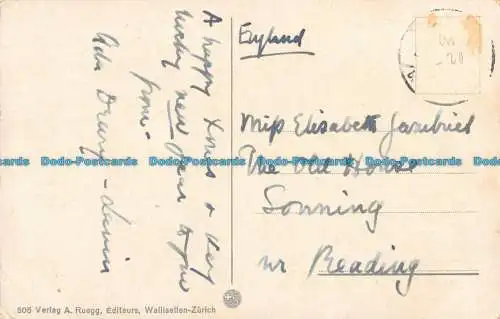 A happy Xmas & very
lucky new year to you
from -
England
Miss Elisabeth
The Old House
Sonning
nr Reading
Dodo-Postcards Dodo-Postcards Dodo-Postcards Dodo-Postcards Dodo-Postcards
505 Verlag A. Ruegg, Editeurs, Wallisellen-Zürich